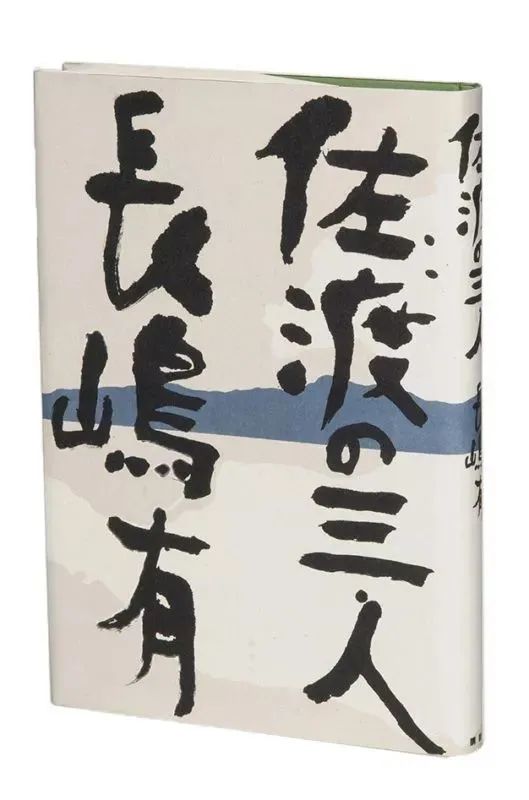 佐渡の三人
長嶋有
佐渡の三人 長嶋有